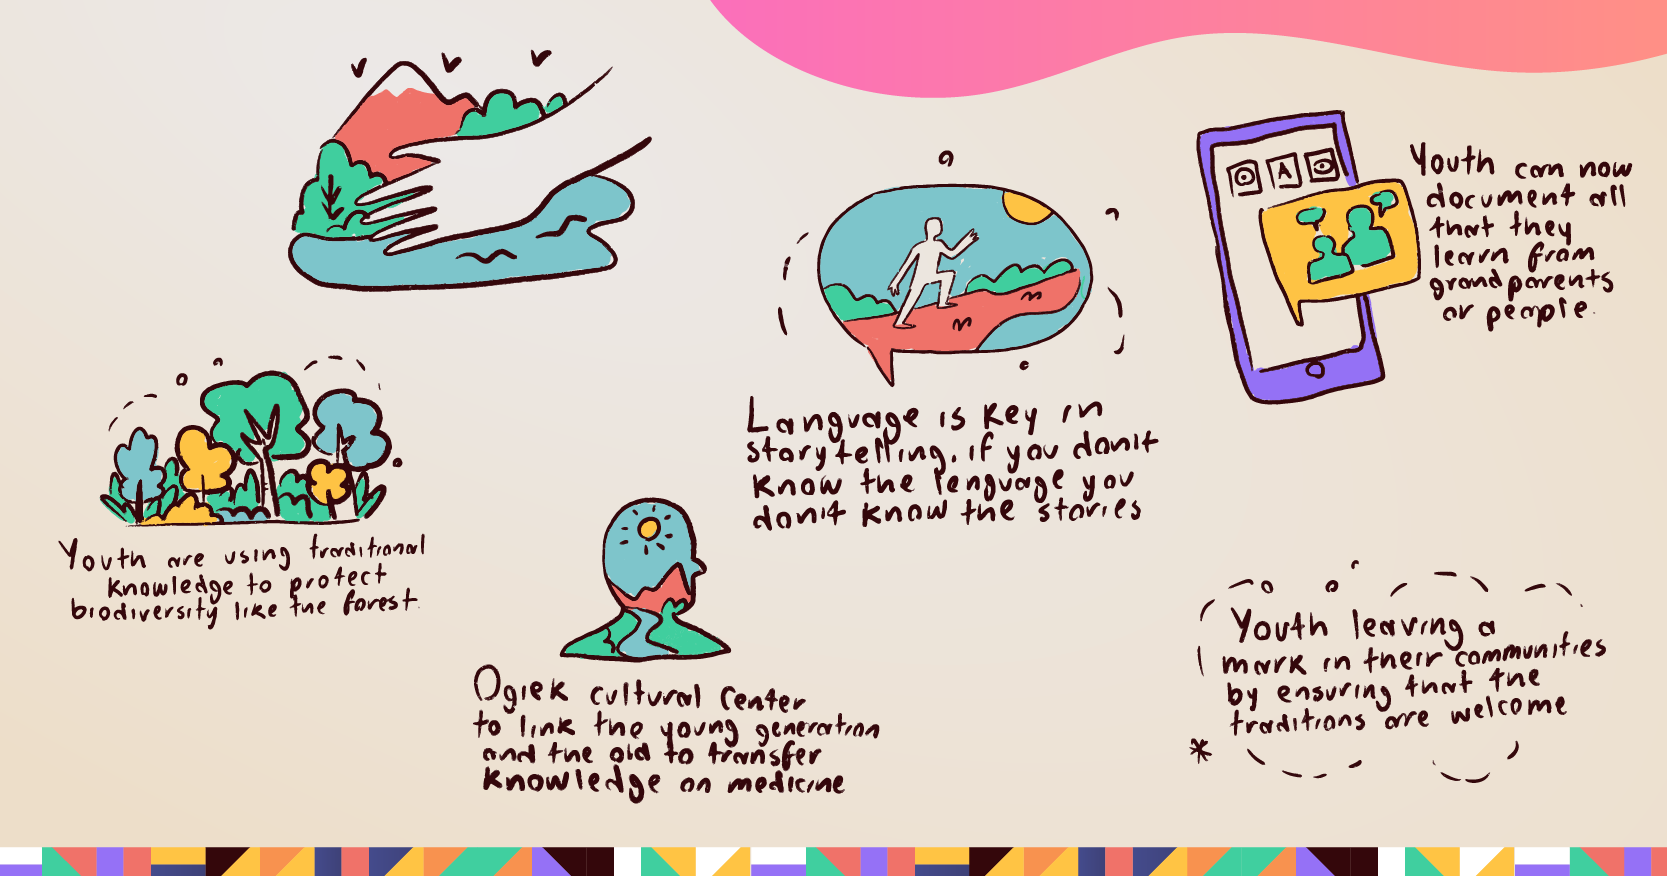 A
Youth can now
document all
that they
learn from
grandparents
or people.
Language is key in
storytelling, if you don't
know the lenguage you
don't know the stories
Youth are using traditional
knowledge to protect
biodiversity like the forest.
Ogiek cultural center
to link the young generation
and the old to transfer
knowledge on medicine
Youth leaving a
mark in their communities
by ensuring that the
traditions are welcome
*